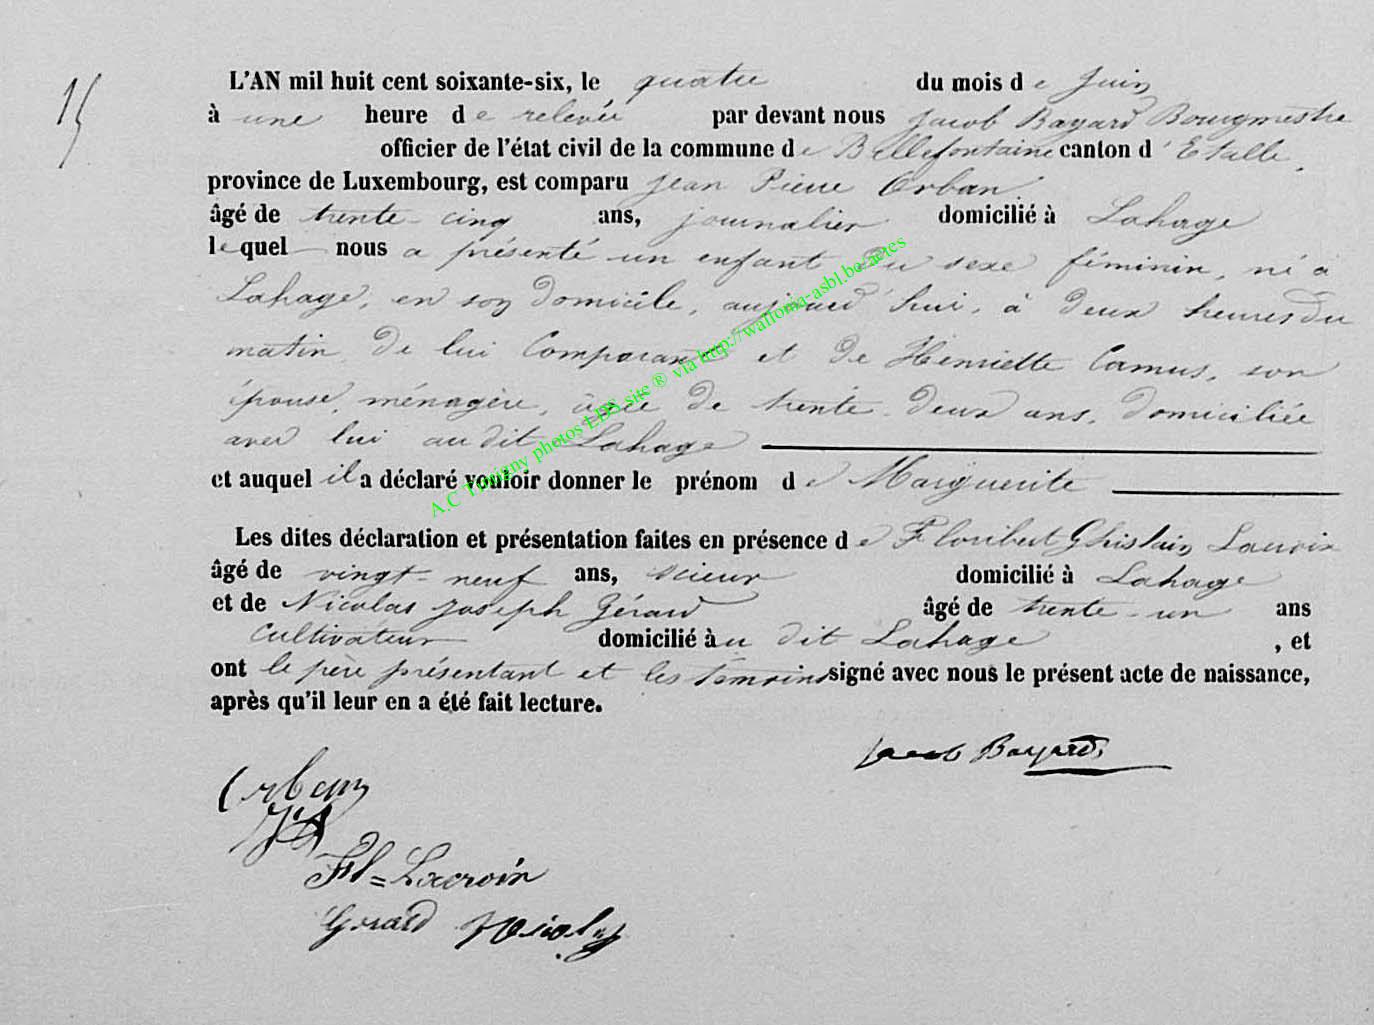 15
L'AN mil huit cent soixante-six, le quatre du mois de Juin
à une heure de relevée par devant nous Jacob Bayard Bourgmestre
officier de l'état civil de la commune de Bellefontaine canton d'Etalle,
province de Luxembourg, est comparu Jean Pierre Orban
âgé de trente-cinq ans, journalier domicilié à Lahage
lequel nous a présenté un enfant du sexe féminin, né à
Lahage, en son domicile, aujourd'hui, à deux heures du
matin, de lui Comparant et de Henriette Camus, son
épouse, ménagère, âgée de trente-deux ans, domiciliée
avec lui au dit Lahage
et auquel il a déclaré vouloir donner le prénom de Marguerite
Les dites déclaration et présentation faites en présence de Floribert Ghislain Lacroix
âgé de vingt-neuf ans, scieur domicilié à Lahage
et de Nicolas Joseph Gérard âgé de trente-un ans
Cultivateur domicilié au dit Lahage, et
ont le père présentant et les témoins signé avec nous le présent acte de naissance,
après qu'il leur en a été fait lecture.
Jacob Bayard
Orban
JP
Fl= Lacroix
Gerard Nicolas
A.C Tintigny photos EDS site ® via http://wallonia-asbl.be-actes